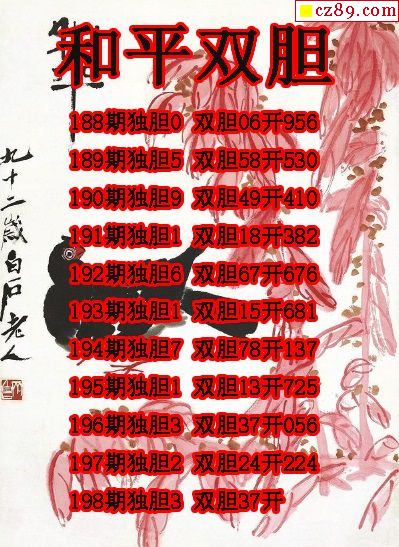 cz89.com
和平双胆
188期独胆0 双胆06开956
189期独胆5 双胆58开530
190期独胆9 双胆49开410
191期独胆1 双胆18开382
192期独胆6 双胆67开676
193期独胆1 双胆15开681
194期独胆7 双胆78开137
195期独胆1 双胆13开725
196期独胆3 双胆37开056
197期独胆2 双胆24开224
198期独胆3 双胆37开
九十二岁白石老人